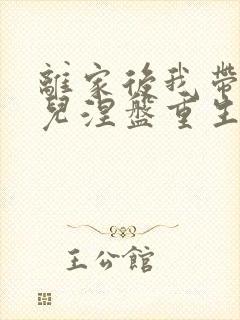 離家後我帶
兒涅盤重生
王公館